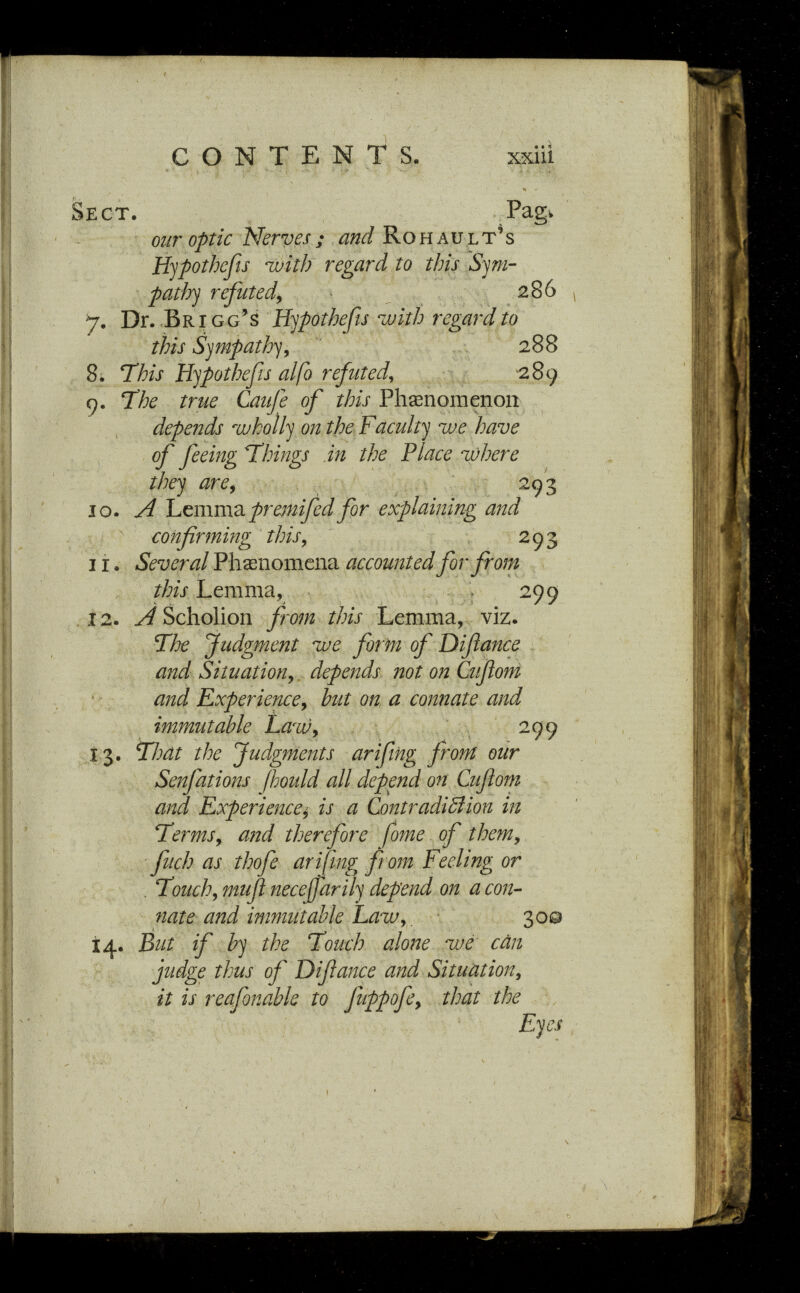 CONTENTS. xxiii
SECT. Pag.
our optic Nerves; and ROHAULT's
Hypotheſis with regard to this Sym-
pathy refuted, 286
7. Dr. BRIGG's Hypotheſis with regard to
this Sympathy, 288
8. This Hypotheſis alſo refuted, 289
9. The true Cauſe of this Phænomenon
depends wholly on the Faculty we have
of ſeeing Things in the Place where
they are, 293
10. A Lemma premiſed for explaining and
confirming this, 293
11. Several Phænomena accounted for from
this Lemma, 299
12. A Scholion from this Lemma, viz.
The Judgment we form of Diſtance
and Situation, depends not on Cuſtom
and Experience, but on a connate and
immutable Law, 299
13. That the Judgments ariſing from our
Senſations ſhould all depend on Cuſtom
and Experience, is a Contradiction in
Terms, and therefore ſome of them,
ſuch as thoſe ariſing from Feeling or
Touch, muſt neceſſarily depend on a con-
nate and immutable Law, 300
14. But if by the Touch alone we can
judge thus of Diſtance and Situation,
it is reaſonable to ſuppoſe, that the
Eyes